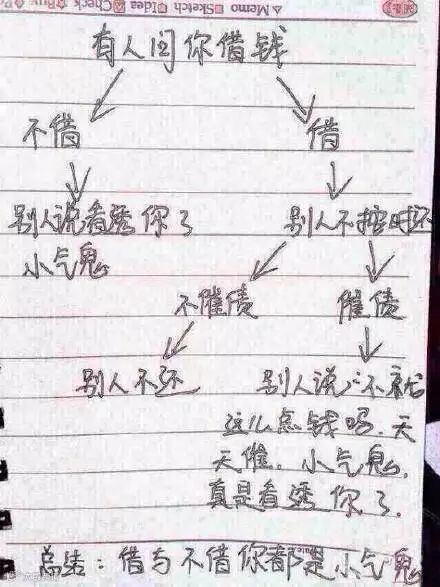 Memo Sketch Idea Check
有人问你借钱
不借 借
别人说看透你了 别人不按时还
小气鬼
不催债 催债
别人不还 别人说:不就
这么点钱吗.天
天催.小气鬼.
真是看透你了.
总结:借与不借你都是小气鬼